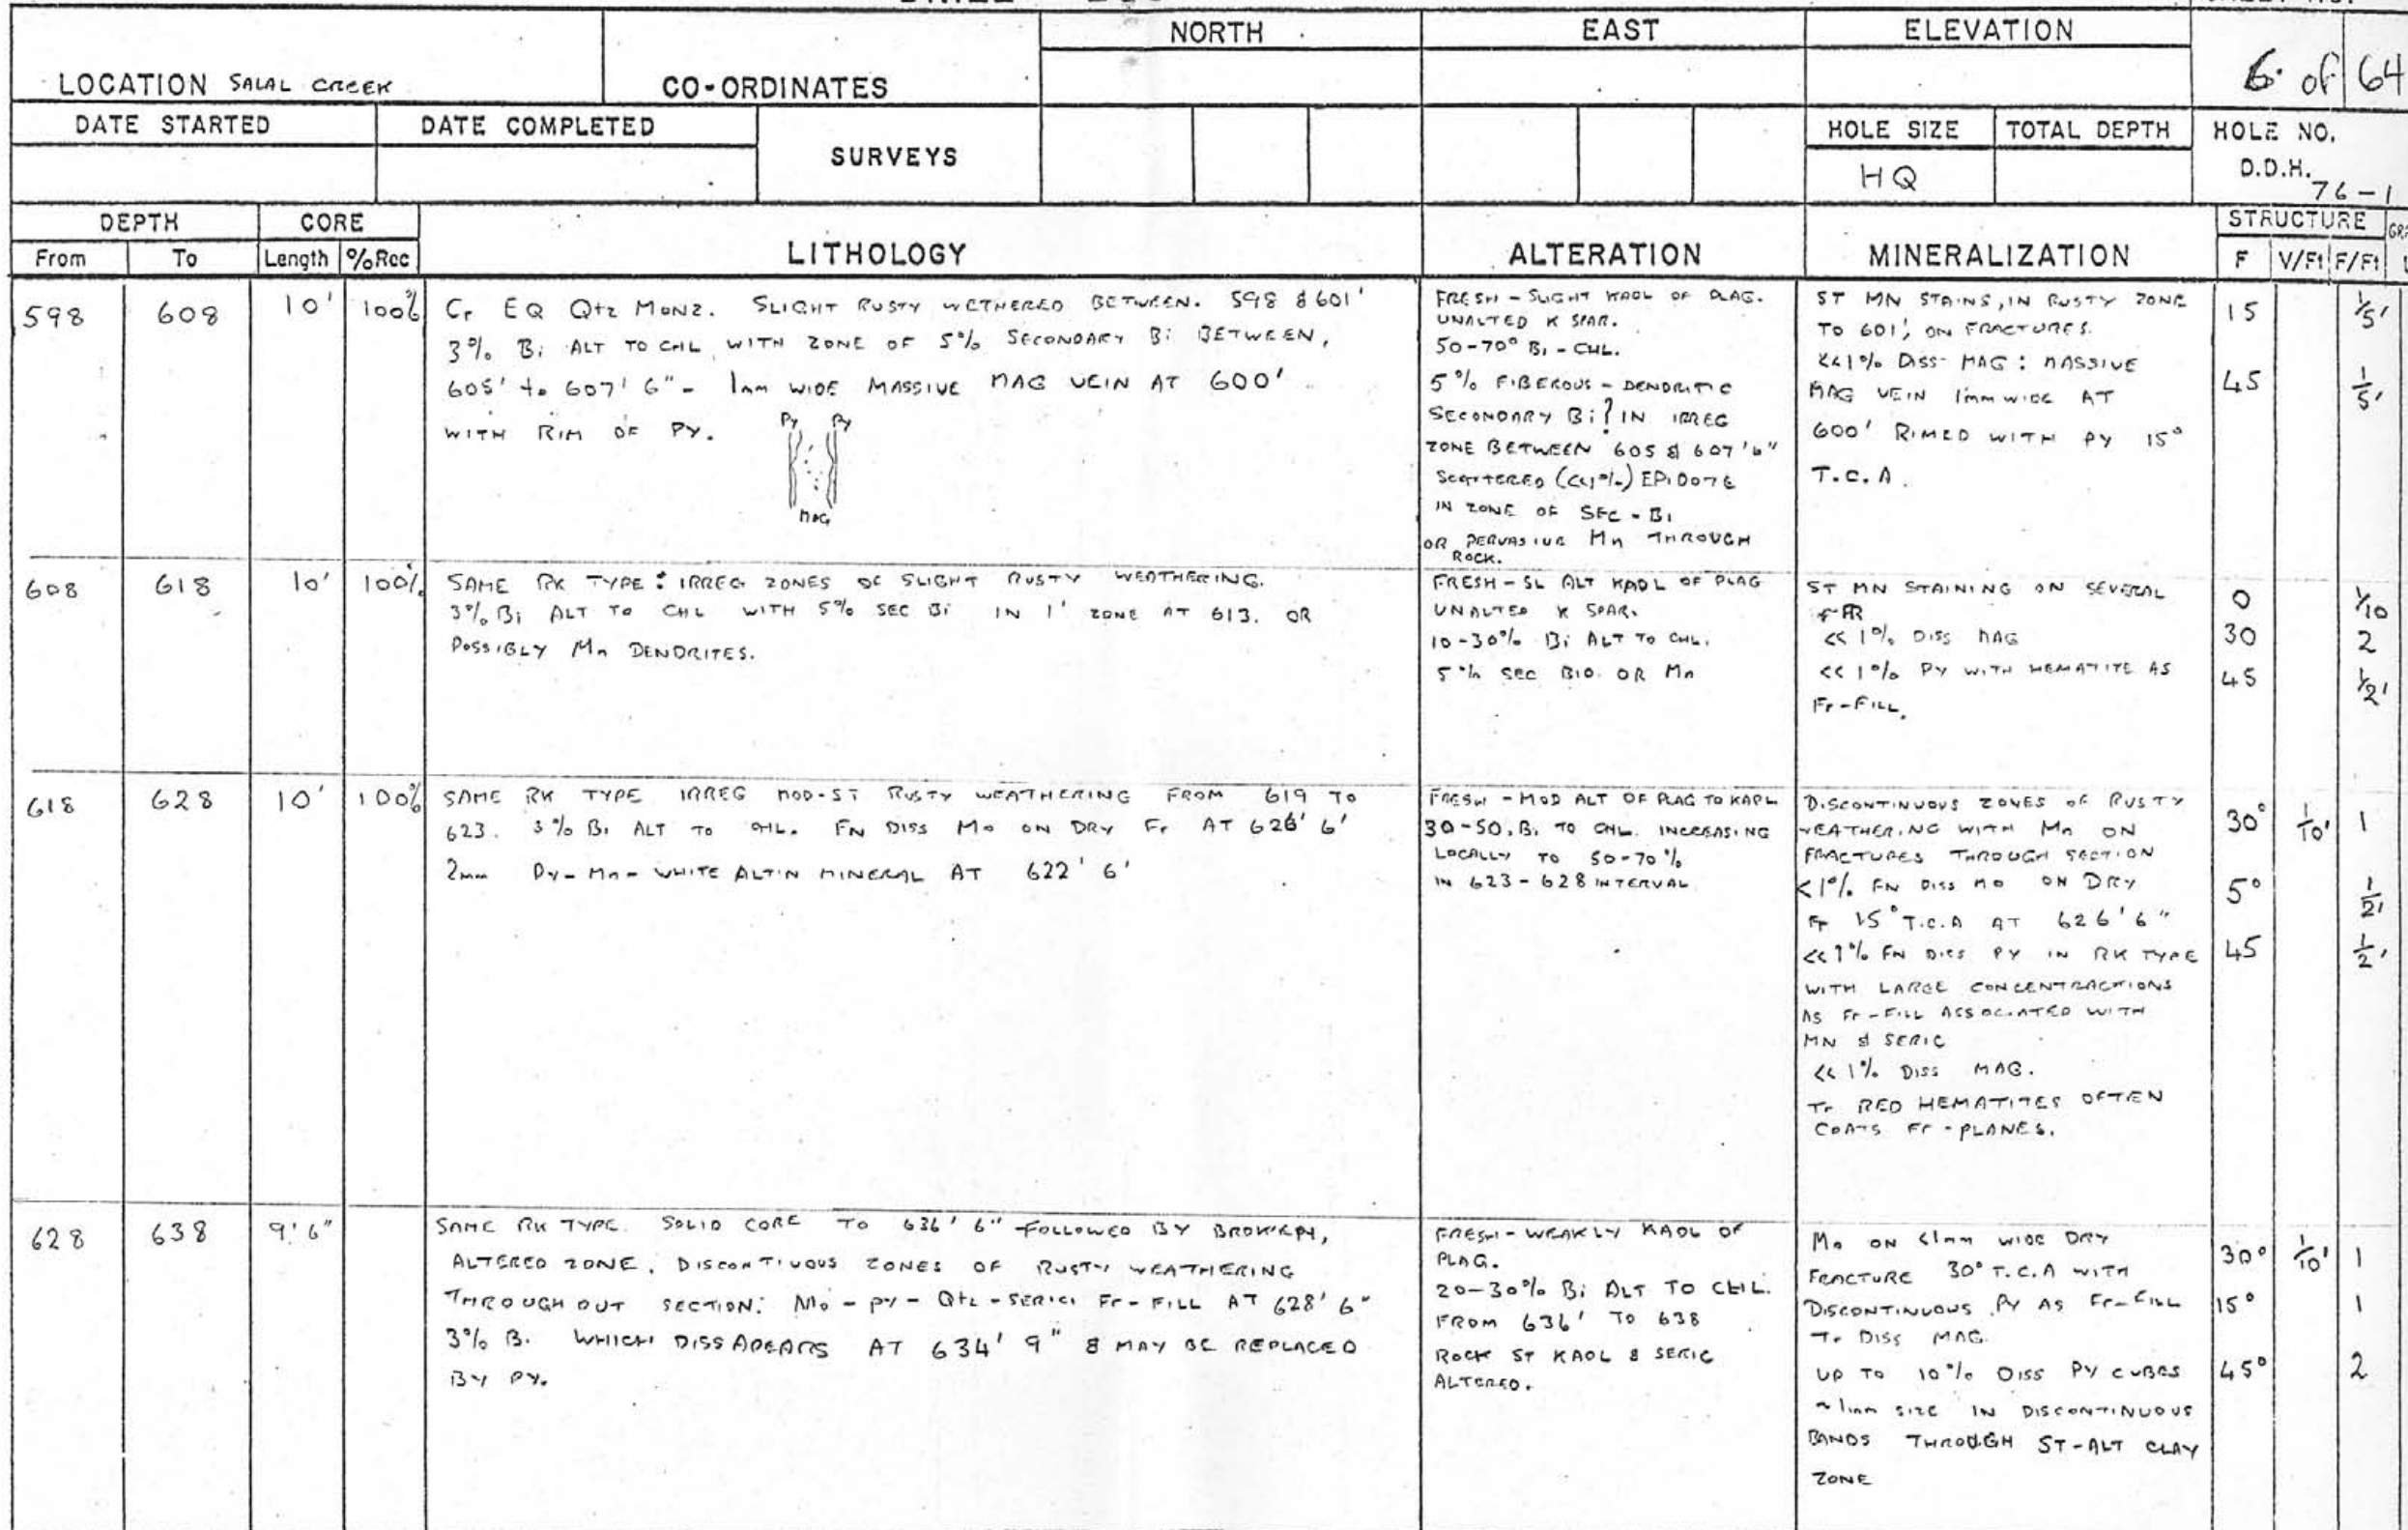 NORTH
EAST
ELEVATION
LOCATION SALAL CREEK
CO-ORDINATES
6 of 64
DATE STARTED
DATE COMPLETED
SURVEYS
HOLE SIZE
TOTAL DEPTH
HOLE NO.
HQ
D.D.H.
76-1
DEPTH
CORE
LITHOLOGY
ALTERATION
MINERALIZATION
STRUCTURE
From
To
Length
%Rec
F
V/Ft
F/Ft
598
608
10'
100%
Cr EQ Qtz MONZ. SLIGHT RUSTY WETHERED BETWEEN. 598 & 601'
3% Bi ALT TO CHL WITH ZONE OF 5% SECONDARY Bi BETWEEN,
605' to 607' 6" - 1mm WIDE MASSIVE MAG VEIN AT 600'
WITH RIM OF PY.
Py Py
MAG
FRESH - SLIGHT KAOL OF PLAG.
UNALTED K SPAR.
50-70° Bi - CHL.
5% FIBEROUS - DENDRITIC
SECONDARY Bi? IN IRREG
ZONE BETWEEN 605 & 607'6"
SCATTERED (<<1%) EPIDOTE
IN ZONE OF SEC - Bi
OR PERVASIVE Mn THROUGH
ROCK.
ST MN STAINS, IN RUSTY ZONE
TO 601', ON FRACTURES.
<<1% DISS- MAG : MASSIVE
MAG VEIN 1mm WIDE AT
600' RIMED WITH PY 15°
T.C.A.
15
1/5'
45
1/5'
608
618
10'
100%
SAME RK TYPE : IRREG ZONES OF SLIGHT RUSTY WEATHERING.
3% Bi ALT TO CHL WITH 5% SEC Bi IN 1' ZONE AT 613. OR
POSSIBLY Mn DENDRITES.
FRESH - SL ALT KAOL OF PLAG
UNALTED K SPAR.
10-30% Bi ALT TO CHL.
5% SEC BIO. OR Mn
ST MN STAINING ON SEVERAL
FR
<< 1% DISS MAG
<< 1% PY WITH HEMATITE AS
Fr-FILL.
0
1/10
30
2
45
1/2'
618
628
10'
100%
SAME RK TYPE IRREG MOD-ST RUSTY WEATHERING FROM 619 TO
623. 3% Bi ALT TO CHL. FN DISS Mo ON DRY Fr AT 626' 6'
2mm Py-Mn-WHITE ALT'N MINERAL AT 622' 6'
FRESH - MOD ALT OF PLAG TO KAOL
30-50. Bi TO CHL. INCREASING
LOCALLY TO 50-70%
IN 623-628 INTERVAL
DISCONTINUOUS ZONES OF RUSTY
WEATHERING WITH Mn ON
FRACTURES THROUGH SECTION
<1% FN DISS MO ON DRY
Fr 15° T.C.A AT 626'6"
<<1% FN DISS PY IN RK TYPE
WITH LARGE CONCENTRACTIONS
AS Fr-FILL ASSOCIATED WITH
MN & SERIC
<< 1% DISS MAG.
Tr RED HEMATITES OFTEN
COATS Fr-PLANES.
30°
1/10'
1
5°
1/2'
45
1/2'
628
638
9'6"
SAME RK TYPE. SOLID CORE TO 636' 6" FOLLOWED BY BROKEN,
ALTERED ZONE. DISCONTINUOUS ZONES OF RUSTY WEATHERING
THROUGHOUT SECTION. Mo - py - Qtz - SERICI Fr-FILL AT 628' 6"
3% Bi WHICH DISSAPEARS AT 634' 9" & MAY BE REPLACED
BY PY.
FRESH - WEAKLY KAOL OF
PLAG.
20-30% Bi ALT TO CHL.
FROM 636' TO 638
ROCK ST KAOL & SERIC
ALTERED.
Mo ON <1mm WIDE DRY
FRACTURE 30° T.C.A WITH
DISCONTINUOUS PY AS Fr-FILL
Tr DISS MAG.
UP TO 10% DISS PY CUBES
~1mm SIZE IN DISCONTINUOUS
BANDS THROUGH ST-ALT CLAY
ZONE
30°
1/10'
1
15°
1
45°
2